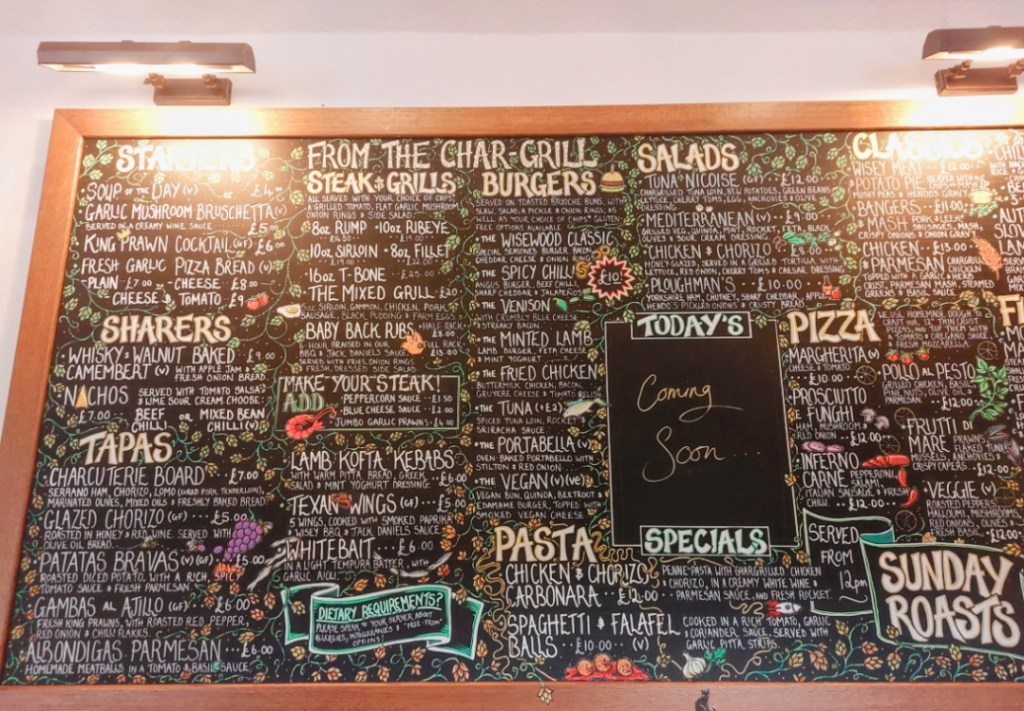 STARTERS
SOUP OF THE DAY (V) £4.00
GARLIC MUSHROOM BRUSCHETTA (V)
SERVED IN A CREAMY WINE SAUCE £5.00
KING PRAWN COCKTAIL (GF) £6.00
FRESH GARLIC PIZZA BREAD (V)
PLAIN £7.00 - CHEESE £8.00
CHEESE & TOMATO £9.00
SHARERS
WHISKY & WALNUT BAKED £9.00
CAMEMBERT (V) WITH APPLE JAM &
FRESH ONION BREAD
NACHOS SERVED WITH TOMATO SALSA
& LIME SOUR CREAM CHOOSE:
£7.00 BEEF OR MIXED BEAN
CHILLI CHILLI (V)
TAPAS
CHARCUTERIE BOARD £7.00
SERRANO HAM, CHORIZO, LOMO (CURED PORK TENDERLOIN),
MARINATED OLIVES, MIXED OILS & FRESHLY BAKED BREAD
GLAZED CHORIZO (GF) £5.00
ROASTED IN HONEY & RED WINE. SERVED WITH
OLIVE OIL BREAD.
PATATAS BRAVAS (V) (GF) £5.00
ROASTED DICED POTATO, WITH A RICH, SPICY
TOMATO SAUCE & FRESH PARMESAN
GAMBAS AL AJILLO (GF) £6.00
FRESH KING PRAWNS, WITH ROASTED RED PEPPER,
RED ONION & CHILLI FLAKES.
ALBONDIGAS PARMESAN £6.00
HOMEMADE MEATBALLS IN A TOMATO & BASIL SAUCE
FROM THE CHAR-GRILL
STEAK & GRILLS
ALL SERVED WITH YOUR CHOICE OF CHIPS
A GRILLED TOMATO, FLAT GARLIC MUSHROOM
ONION RINGS & SIDE SALAD
8oz RUMP - 10oz RIBEYE
10oz SIRLOIN - 8oz FILLET
16oz T-BONE
THE MIXED GRILL £20
5oz SIRLOIN, GAMMON, CHICKEN, PORK
SAUSAGE, BLACK PUDDING & FARM EGGS
BABY BACK RIBS HALF RACK £8.00
8 HOUR BRAISED IN OUR FULL RACK £15.00
BBQ & JACK DANIELS SAUCE
SERVED WITH FRIES, ONION RINGS &
FRESH, DRESSED SIDE SALAD
MAKE YOUR STEAK!
ADD
PEPPERCORN SAUCE £1.50
BLUE CHEESE SAUCE £2.00
JUMBO GARLIC PRAWNS £4.00
LAMB KOFTA KEBABS
WITH WARM PITTA BREAD, GREEK
SALAD & MINT YOGHURT DRESSING £6.00
TEXAN WINGS (GF) £5.00
5 WINGS, COOKED WITH SMOKED PAPRIKA
& WISEY BBQ & JACK DANIELS SAUCE
WHITEBAIT £6.00
IN A LIGHT TEMPURA BATTER, WITH
GARLIC AIOLI.
DIETARY REQUIREMENTS?
PLEASE SPEAK TO YOUR SERVER ABOUT
ALLERGIES, INTOLERANCES & "FREE-FROM"
OPTIONS
BURGERS
SERVED ON TOASTED BRIOCHE BUNS, WITH
SLAW, SALAD, A PICKLE & ONION RINGS, AS
WELL AS YOUR CHOICE OF CHIPS. GLUTEN
FREE OPTIONS AVAILABLE
THE WISEWOOD CLASSIC
CHEDDAR, CHEESE & ONION RINGS
THE SPICY CHILLI
ANGUS BURGER, BEEF CHILLI,
SHARP CHEDDAR & JALAPENOS
£10
THE VENISON
WITH CREAMY BLUE CHEESE
& STREAKY BACON
THE MINTED LAMB
LAMB BURGER, FETA CHEESE
& MINT YOGHURT
THE FRIED CHICKEN
BUTTERMILK CHICKEN, BACON,
GRUYERE CHEESE & TOMATO RELISH
THE TUNA (+£2)
SPICED TUNA LOIN, ROCKET &
SRIRACHA SAUCE
THE PORTABELLA (V)
OVEN BAKED PORTABELLO WITH
STILTON & RED ONION
THE VEGAN (V) (VE)
VEGAN BUN, QUINOA, BEETROOT &
EDAMAME BURGER, TOPPED WITH
SMOKED VEGAN CHEESE
PASTA
CHICKEN & CHORIZO PENNE PASTA WITH CHARGRILLED CHICKEN
CARBONARA £12.00 & CHORIZO, IN A CREAMY WHITE WINE &
PARMESAN SAUCE, AND FRESH ROCKET.
SPAGHETTI & FALAFEL COOKED IN A RICH TOMATO, GARLIC
BALLS £10.00 (V) & CORIANDER SAUCE, SERVED WITH
GARLIC PITTA STRIPS.
SALADS
TUNA NICOISE (GF) £12.00
CHARGRILLED TUNA LOIN, NEW POTATOES, GREEN BEANS
LETTUCE, CHERRY TOMS, EGG, ANCHOVIES & OLIVES
MEDITERRANEAN (V) £9.00
GRILLED VEG, QUINOA, MINT, ROCKET, FETA, BLACK
OLIVES & SOUR CREAM DRESSING
CHICKEN & CHORIZO
HONEY GLAZED, SERVED IN A GRILLED TORTILLA WITH
LETTUCE, RED ONION, CHERRY TOMS & CAESAR DRESSING
PLOUGHMAN'S £10.00
YORKSHIRE HAM, CHUTNEY, SHARP CHEDDAR, APPLE
HENDO'S PICKLED ONIONS & CRUSTY BREAD
TODAY'S
Coming
Soon....
SPECIALS
CLASSICS
WISEY MEAT & £12.00
POTATO PIE
BANGERS & £11.00
MASH
CHICKEN £13.00
PARMESAN
TOPPED WITH A GARLIC & HERB
CRUST, PARMESAN MASH, STEAMED
GREENS & BASIL SAUCE
PIZZA
WE USE HOMEMADE DOUGH
MARGHERITA (V)
CHEESE & TOMATO
£10.00
PROSCIUTTO
E FUNGHI
HAM, MUSHROOM &
RED ONION £12.00
INFERNO
CARNE PEPPERONI,
SALAMI,
ITALIAN SAUSAGE, & FRESH
CHILLI £12.00
POLLO AL PESTO
GRILLED CHICKEN, BASIL,
PINE NUTS, OLIVE OIL
£12.00
FRUTTI DI
MARE PRAWNS,
MUSSELS, ANCHOVIES &
CRISPY CAPERS £12.00
VEGGIE (V)
ROASTED PEPPERS,
HALLOUMI, MUSHROOMS,
RED ONIONS, OLIVES &
BASIL £12.00
SERVED
FROM
12pm
SUNDAY
ROASTS